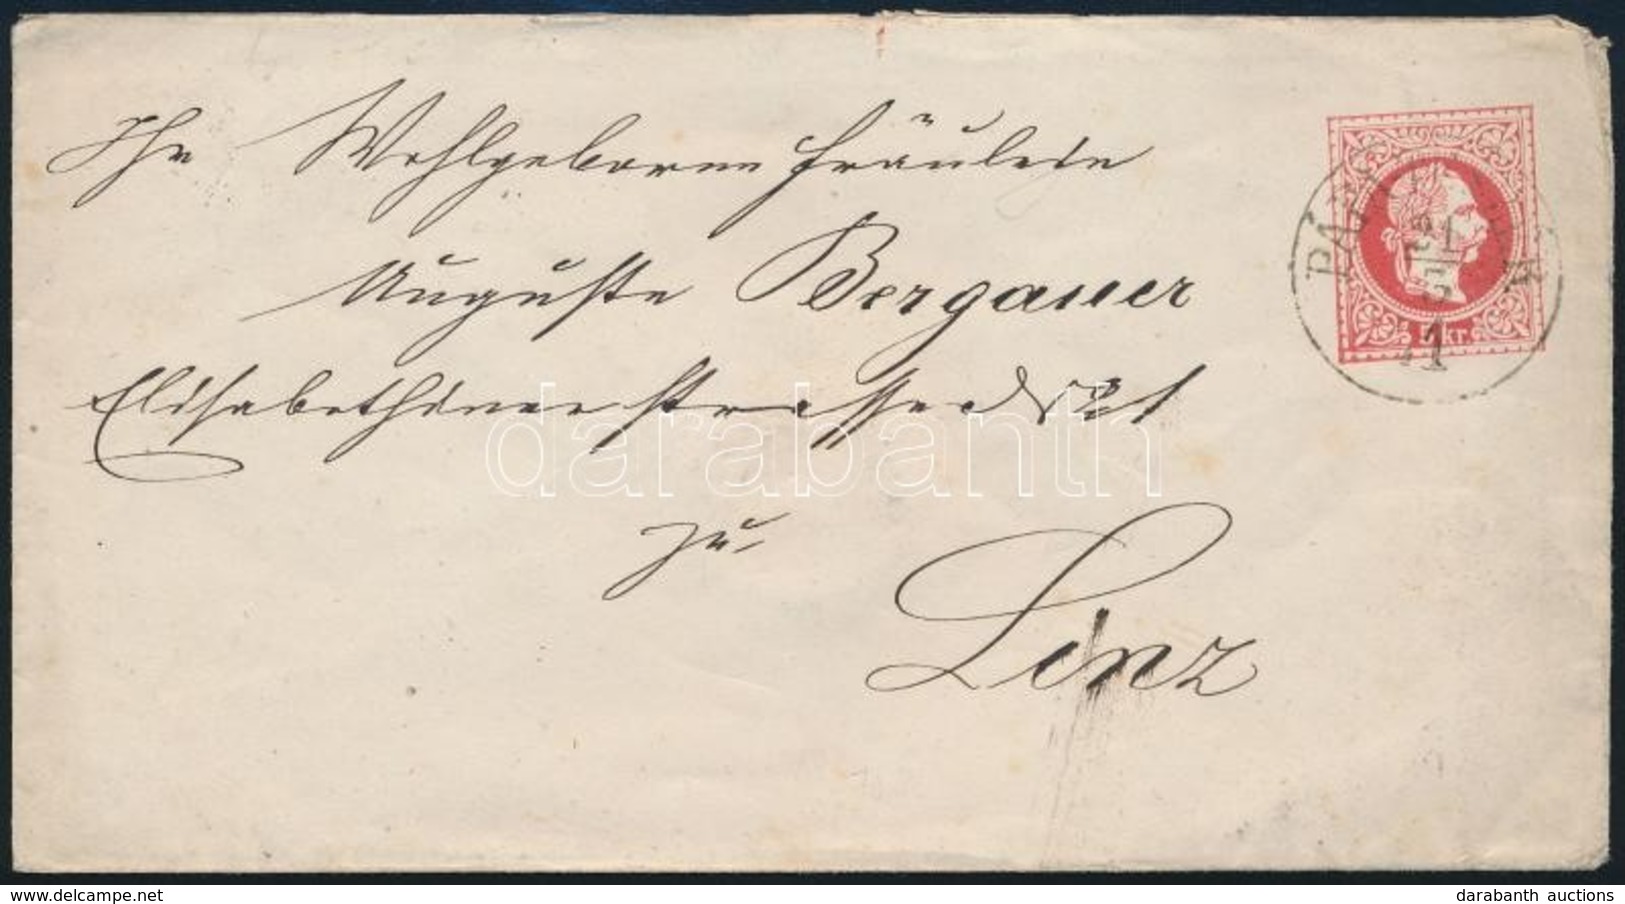 Ihr Wohlgeboren Fräulein
Auguste Bergauer
Elisabethinenstrasse
zu
Linz
5 kr.
71
darabanth
delcampe.net
darabanth auctions